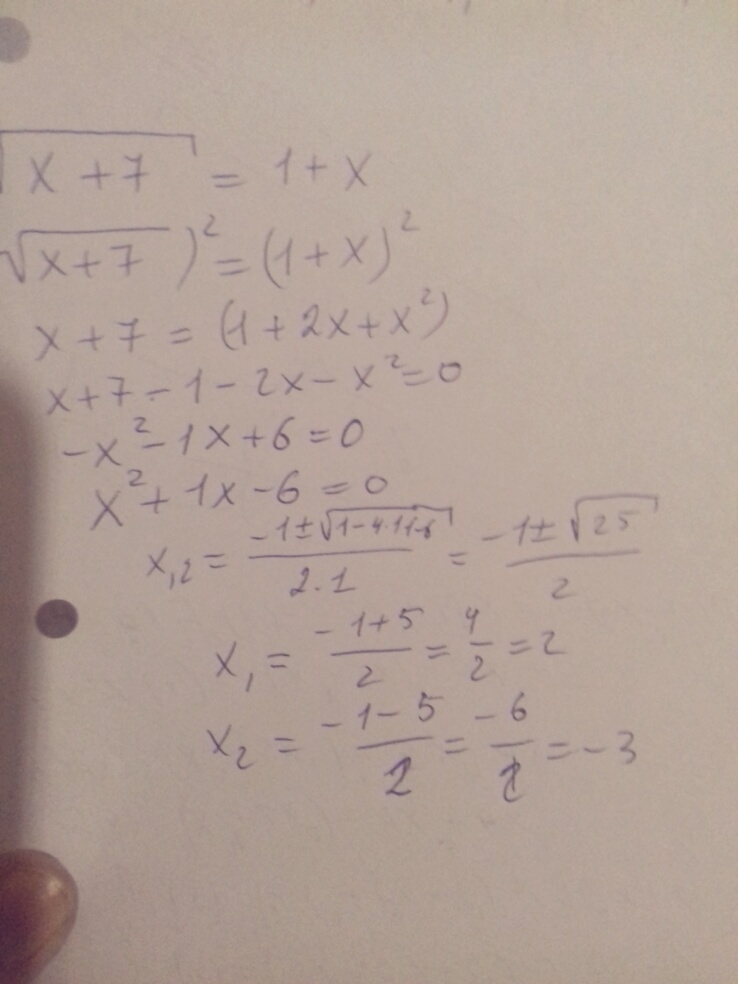 √x+7 = 1+x
√x+7 )² = (1+x)²
x+7 = (1+2x+x²)
x+7-1-2x-x²=0
-x²-1x+6=0
x²+1x-6=0
x,₂ = (-1±√1-4·1·(-6))/(2·1) = (-1±√25)/2
x₁ = (-1+5)/2 = 4/2 = 2
x₂ = (-1-5)/2 = -6/2 = -3